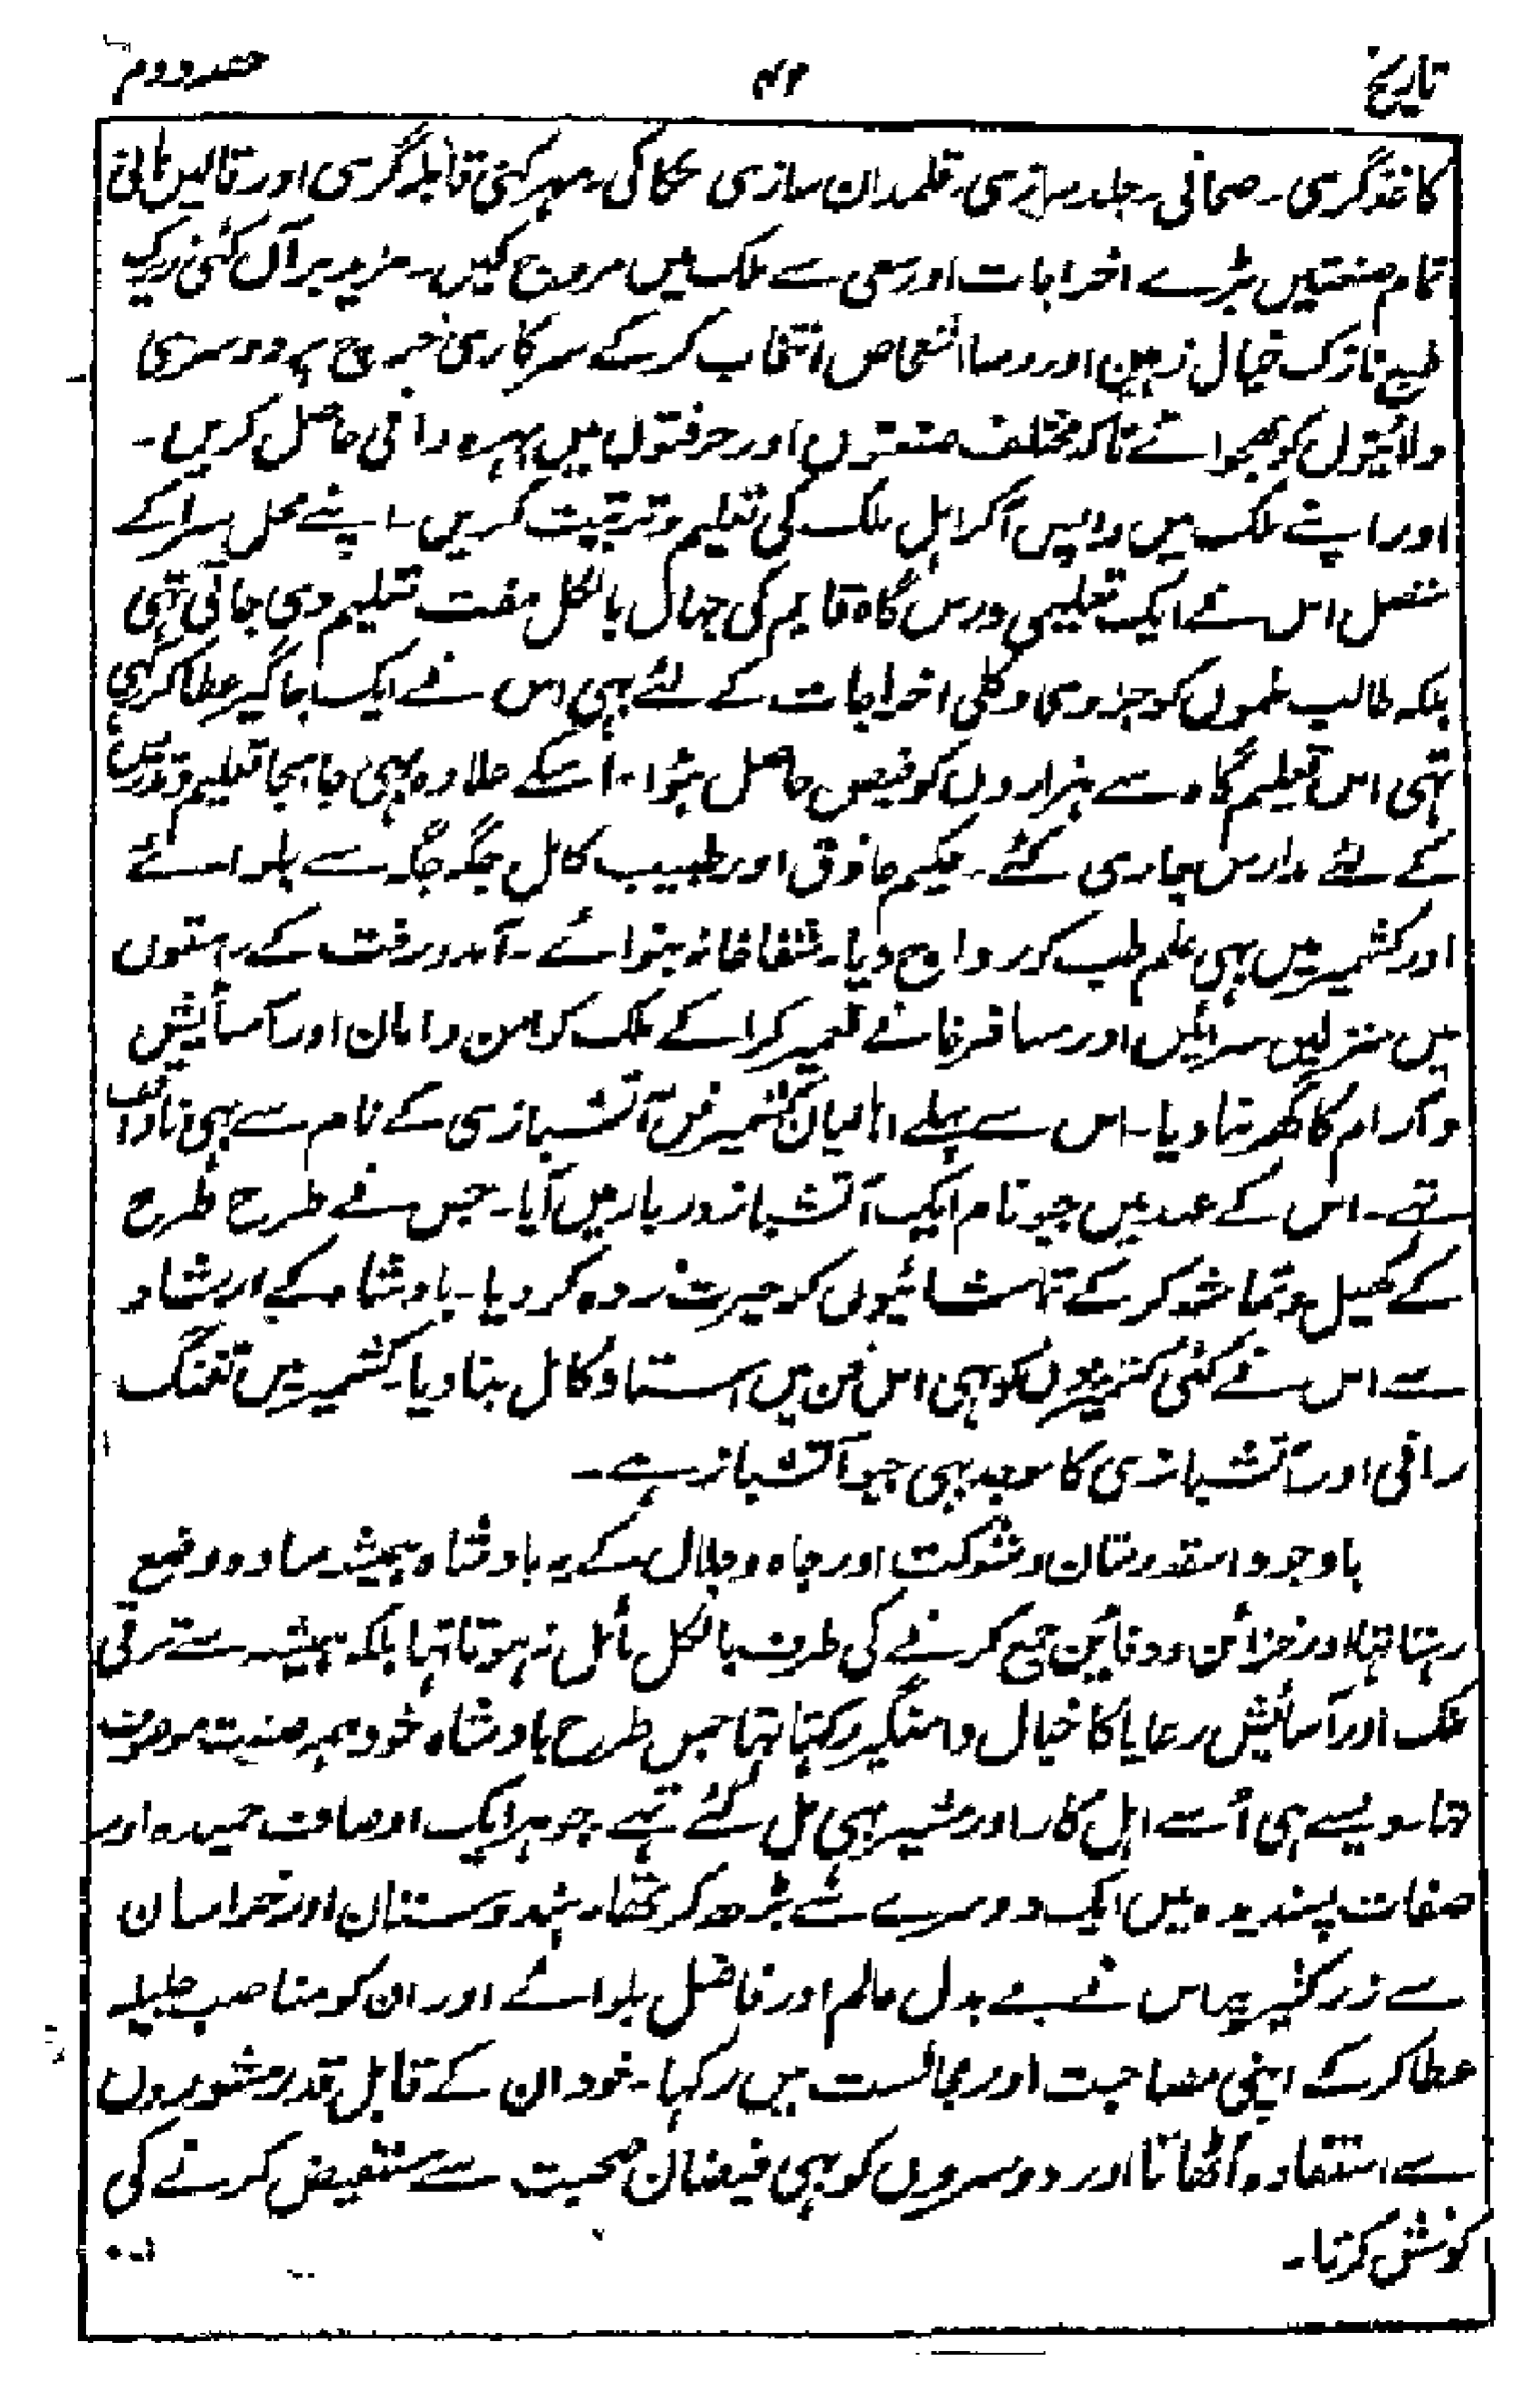 تاریخ ۴۶ حصہ دوم
کاغذگری۔ صحافی۔ جلد سازی۔ قلمدان سازی حکاکی۔ مہرکنی قابلہ گری اور قالین بافی
تمام صنعتیں بڑے اخراجات اور سعی سے ملک میں مروج کیں۔ مزید برآں کئی زیرک
طبع نازک خیال ذہین اور رسا اشخاص انتخاب کرکے سرکاری خرچ پر دوسری
ولائیتوں کو بھجوائے تاکہ مختلف صنعتوں اور حرفتوں میں بہرہ وافی حاصل کریں۔
اور اپنے ملک میں واپس آکر اہل ملک کی تعلیم و تربیت کریں۔ اپنے محل سرا کے
متصل اس نے ایک تعلیمی درس گاہ قایم کی جہاں بالکل مفت تعلیم دی جاتی تہی
بلکہ طالب علموں کو جزوی و کلی اخراجات کے لئے بہی اس نے ایک جاگیر عطا کر رکہی
تہی اس تعلیم گاہ سے ہزاروں کو فیض حاصل ہؤا۔ اسکے علاوہ بہی جابجا تعلیم و تدریس
کے لئے مدارس جاری کئے۔ حکیم حاذق اور طبیب کامل جگہ جگہ سے بلوائے
اور کشمیر میں بہی علم طب کو رواج دیا۔ شفاخانہ بنوائے۔ آمدورفت کے رستوں
میں منزلیں سرائیں اور مسافرخانے تعمیر کراکے ملک کو امن و امان اور آسائیش
و آرام کا گھر بنا دیا۔ اس سے پہلے اہالیان کشمیر فن آتشبازی کے نام سے بہی ناواقف
تہے۔ اس کے عہد میں جیو نام ایک آتشباز دربار میں آیا۔ جس نے طرح طرح
کے کھیل و تماشہ کرکے تماشائیوں کو حیرت زدہ کردیا۔ بادشاہ کے ارشاد
سے اس نے کئی کشمیریوں کو بہی اس فن میں استاد کامل بنا دیا۔ کشمیر میں تفنگ
رانی اور آتشبازی کا موجد یہی جیو آتشباز ہے۔
باوجود اسقدر شان و شوکت اور جاہ و جلال کے یہ بادشاہ ہمیشہ سادہ وضع
رہتا تہا اور خزائن و دفائین جمع کرنے کی طرف بالکل مائل نہ ہوتا تہا بلکہ ہمیشہ سے ترقی
ملک اور آسائیش رعایا کا خیال دامنگیر رکہتا تہا جس طرح بادشاہ خود ہمہ صفت موصوف
تہا۔ ویسے ہی اُسے اہل کار اور مشیر بہی مل گئے تہے۔ جو ہر ایک اوصاف حمیدہ اور
صفات پسندیدہ میں ایک دوسرے سے بڑھ کر تھا۔ ہندوستان اور خراسان
سے زر کثیر پر اس نے بے بدل عالم اور فاضل بلوائے اور ان کو مناصب جلیلہ
عطا کرکے اپنی مصاحبت اور مجالست میں رکہا۔ خود ان کے قابل قدر مشوروں
سے استفادہ اُٹھاتا اور دوسروں کو بہی فیضان صحبت سے مستفیض کرنے کی
کوشش کرتا۔